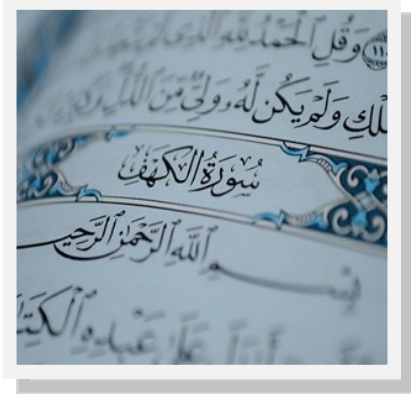 وَقُلِ ٱلْحَمْدُ لِلَّهِ ٱلَّذِى لَمْ
لْكِ وَلَمْ يَكُن لَّهُۥ وَلِىٌّ مِّنَ ٱلذُّلِّ
سُورَةُ الكَهْفِ
بِسْمِ ٱللَّهِ ٱلرَّحْمَٰنِ ٱلرَّحِيمِ
أَنزَلَ عَلَىٰ عَبْدِهِ ٱلْكِتَٰ